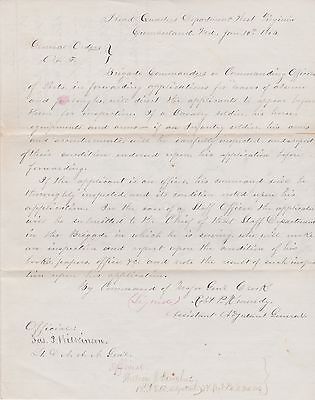 Head Quarters Department West Virginia
Cumberland, Md., Jan 10th
General Orders
No.
Brigade Commanders or Commanding Officers
of Posts, in forwarding applications for leaves of absence
and furloughs, will direct the applicants to appear before
them for inspection. If a Cavalry soldier, his horse,
equipments and arms, if an Infantry soldier, his arms
and accoutrements, will be carefully inspected and report
of their condition endorsed upon his application before
forwarding.
If the applicant is an officer, his command will be
thoroughly inspected and its condition noted upon his
application. In the case of a Staff Officer the application
will be submitted to the Chief of that Staff Department
in the Brigade in which he is serving, who will make
an inspection and report upon the condition of his
books, papers, office &c. and note the result of such inspec-
tion upon his application.
By Command of Major Genl Crook
(Signed) Robt P. Kennedy
Assistant Adjutant General
Official
Jas. J. Wilkinson
Official